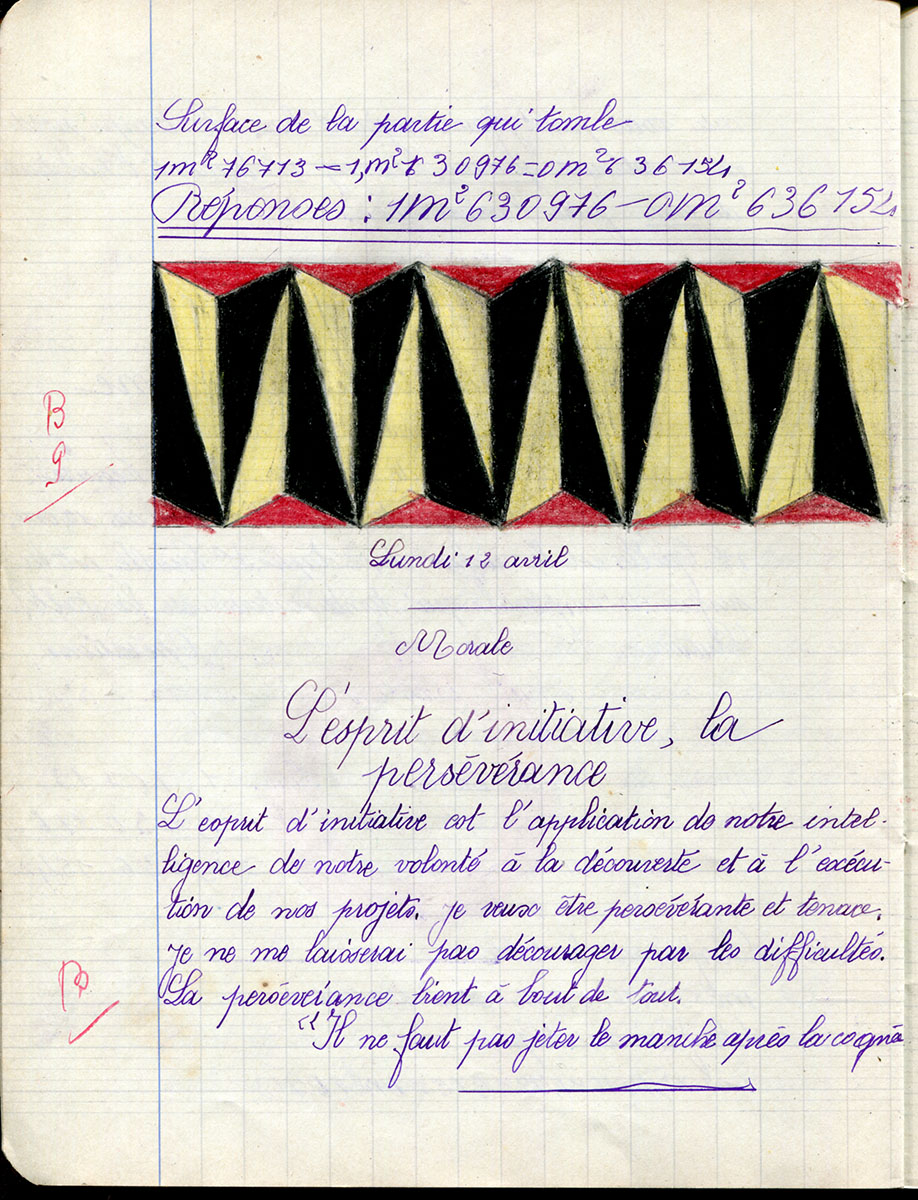 Surface de la partie qui tombe
Réponses : 1m² 630976 – 0m² 636154
B
9
Lundi 12 avril
Morale
L'esprit d'initiative, la
persévérance
L'esprit d'initiative est l'application de notre intel-
ligence de notre volonté à la découverte et à l'exécu-
tion de nos projets. je veux être persévérante et tenace.
je ne me laisserai pas décourager par les difficultés.
La persévérance vient à bout de tout.
"Il ne faut pas jeter le manche après la cogné
B